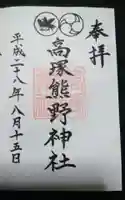 奉拝
高塚熊野神社
平成二十八年八月十五日